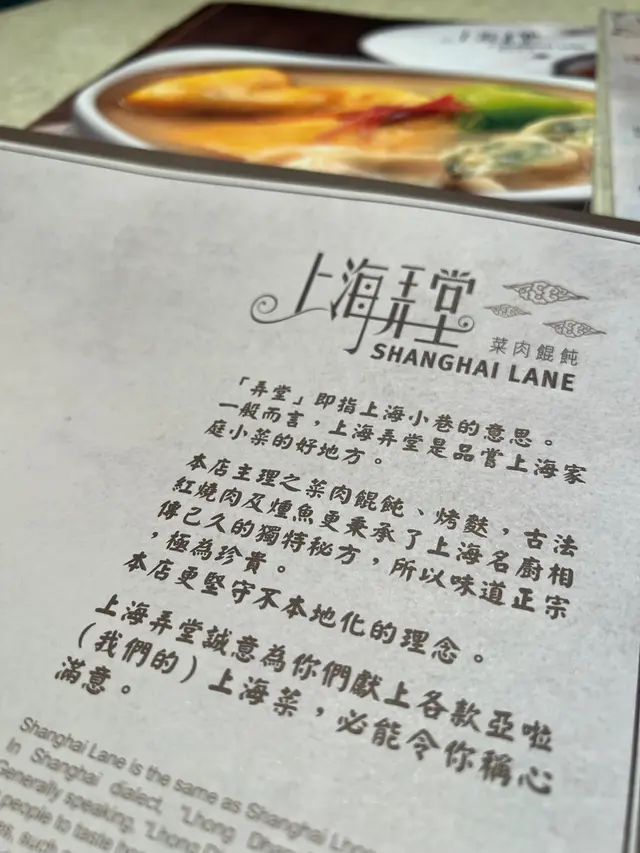 上海弄堂
上海弄堂
菜肉餛飩
SHANGHAI LANE
「弄堂」即指上海小巷的意思。
一般而言，上海弄堂是品嘗上海家
庭小菜的好地方。
本店主理之菜肉餛飩、烤麩，古法
紅燒肉及燻魚更秉承了上海名廚相
傳已久的獨特秘方，所以味道正宗
，極為珍貴。
本店更堅守不本地化的理念。
上海弄堂誠意為你們獻上各款亞啦
（我們的）上海菜，必能令你稱心
滿意。
Shanghai Lane is the same as Shanghai Lhong
In Shanghai dialect, "Lhong Dhang
Generally speaking, "Lhong D
people to taste
such